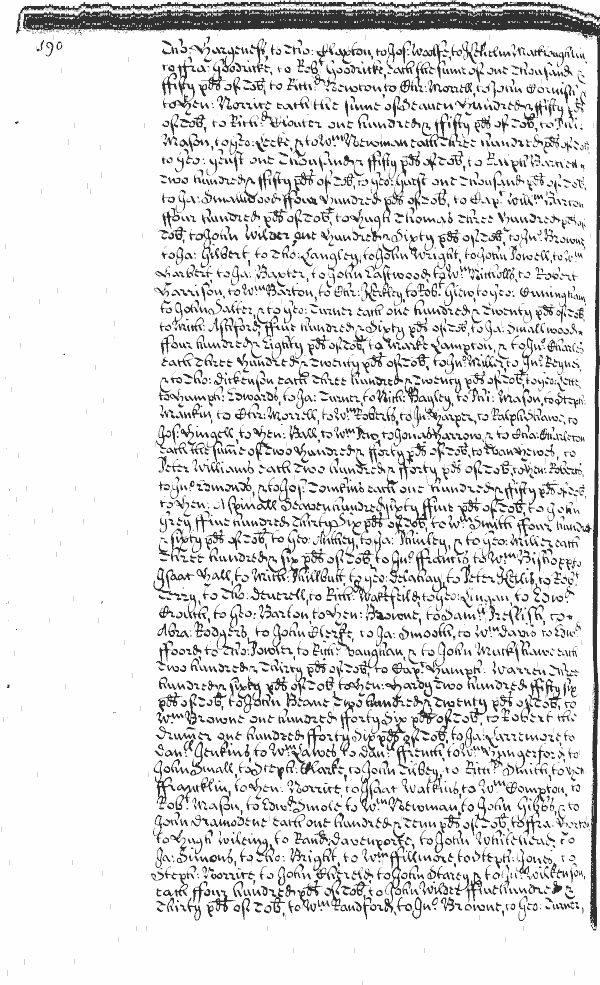 190
Tho: Hargeness, to Tho: Clapton, to Jos: Woolfe, to Kehelm Mackloughlin
to ffra: Goodricke, to Robt Goodricke, each the sume of one Thousand &
ffifty pds of Tob, to Richd Newton to Chr: Morrell, to John Cornish
to Hen: Norrice each the sume of Seaven Hundred & ffifty pds
of Tob, to Richd Winter one hundred & ffifty pds of Tob, to Mi:
Mason, to Geo: Leeke, & to Wm Newman each Three hundred pds of Tob
to Geo: Gust one Thousand & ffifty pds of Tob, to Ralph Barren
Two hundred & ffifty pds of Tob, to Geo: Gust one Thousand pds of Tob,
to Ja: Smallwood ffour Hundred pds of Tob, to Capt Willm Barton
ffour hundred pds of Tob, to Hugh Thomas Three Hundred pds of
Tob, to John Wilder one Hundred & Sixty pds of Tob, to Jno: Browne
to Ja: Gilbert, to Tho: Langley, to John Wright, to John Powell, to Wm
Harbert to Ja: Baxter, to John Eastwood, to Wm Nicholls, to Robert
Harrison, to Wm Barton, to Chr: Kerkley, to Rob: Gion, to Geo: Cunningham
to John Salter, & to Geo: Turner each one hundred & Twenty pds of Tob,
to Mich: Ashford ffive hundred & Sixty pds of Tob, to Ja: Smallwood
ffour hundred & Eighty pds of Tob, to Marke Lampton, & to Jno: Charles
each Three Hundred & Twenty pds of Tob, to Jno: Miller, to Jno: Keynes,
& to Tho: Dickenson each Three hundred & Twenty pds of Tob, to Geo:
to Humph: Edwards, to Ja: Turner, to Rich: Bayley, to Mi: Mason, to Steph:
Mankin to Chr: Morrell, to Wm Roberts, to Jno Harper, to Ralph Shawe, to
Jos: Hingell, to Hen: Ball, to Wm to Jonas Harrow, & to
each the sume of Two Hundred & fforty pds of Tob, to Hewes, to
Peter Williams each Two hundred & fforty pds of Tob, to Hen: Roberts
to Jno: Edmonds, & to Jos: Tomkins each one hundred & ffifty pds of Tob,
to Hen: Aspinall Seaven hundred Sixty ffive pds of Tob, to John
Grey ffive hundred Thirty Six pds of Tob, to Wm Smith ffour hundred
& Sixty pds of Tob, to Geo: Athey, to Ja: Thinley, & to Geo: Miller each
Three hundred & six pds of Tob, to Jno: ffrancis to Wm Bishop, to
Isaac Hall, to Mich: Millbutt, to Geo: Delahay, to Peter to Robt
Terry, to Tho: Deverell, to Rich: Wakefeild, to Geo: Lingan to Edw:
Crouch, to Geo: Barton to Hen: Browne, to Danll to
Abra: Rodgers, to John Clerke, to Ja: Smooth, to Wm Davis to Edw:
ffoord, to Tho: Fowler, to Rich: Vaughan, & to John Muckshawe each
Two hundred & Thirty pds of Tob, to Capt Humph: Warren Three
hundred & sixty pds of Tob, to Hen: Hardy Two hundred ffifty six
pds of Tob, to John Beane Two hundred & Twenty pds of Tob, to
Wm Browne one hundred fforty Six pds of Tob, to Robert the
Drumer one hundred fforty Six pds of Tob, to Ja: Larremore to
Danll Jenkins to Wm Lawes to Dan: ffrench, to Wm Hungerford, to
John Small, to Steph: Clarke, to John Tibey, to Rich: Smith, to Hen
ffrancklin, to Hen: Norrice, to Isaac Watkins, to Wm Compton, to
Robt Mason, to Edwd Smote to Wm Newman, to John Gibbs, & to
John Gramodene each one hundred & Tenn pds of Tob, to ffra:
to Hugh to Rand: Davenporte, to John Whitehead, to
Ja: Simons, to Tho: Bright, to Wm ffillmore to Steph: Jones, to
Steph: Norrice, to John Cherels, to John Starey, & to Jno: Wilkenson,
each ffour hundred pds of Tob, to John Wilder ffive hundred &
Thirty pds of Tob, to Wm Randford, to Jno: Browne, to Geo: Turner,